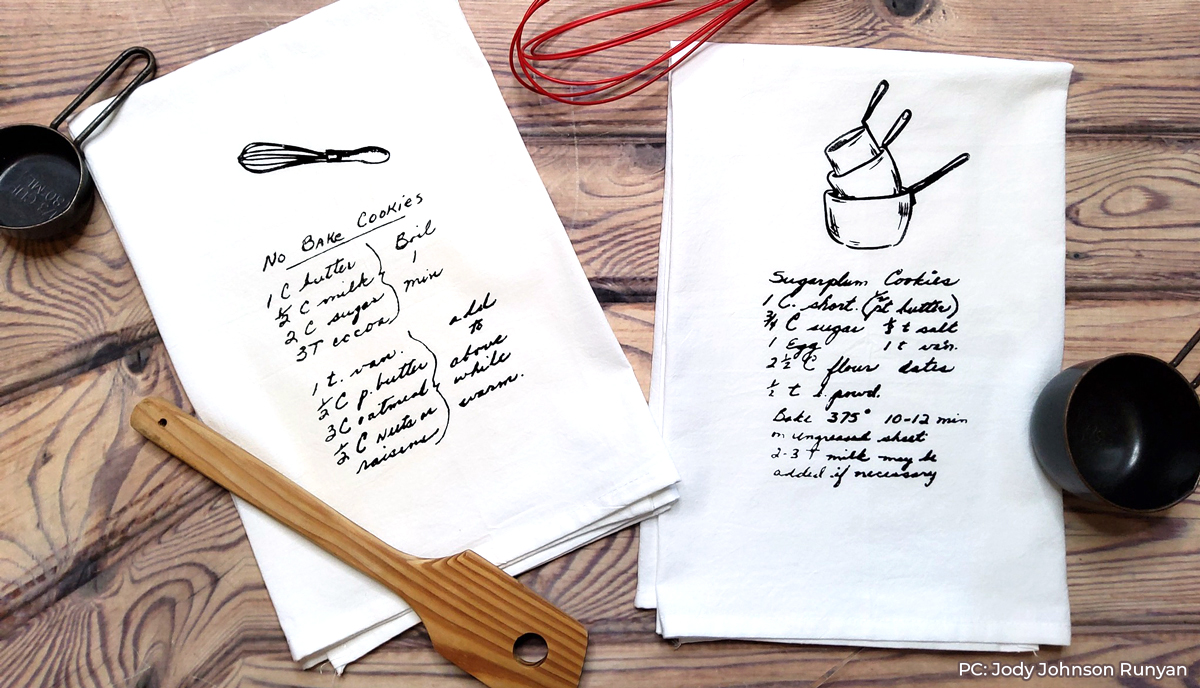 No Bake Cookies
1 C butter
½ C milk
2 C sugar
3T cocoa
Boil
1
min
1 t. van.
½ C p. butter
3 C oatmeal
½ C nuts or
raisins
add
to
above
while
warm.
Sugarplum Cookies
1 C. short. (½ pt butter)
¾ C sugar t salt
1 Egg 1 t van.
2 ½ C flour dates
½ t powd.
Bake 375° 10-12 min
on ungreased sheet
2-3 T milk may be
added if necessary
¼ CUP
PC: Jody Johnson Runyan